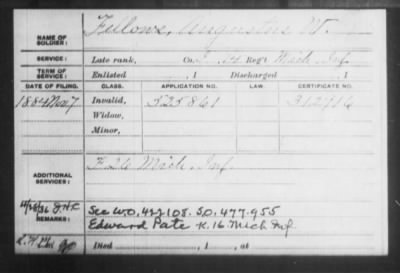 NAME OF SOLDIER: Fellows, Augustus W.
SERVICE: Late rank, Co. Reg't Mich. Inf.
TERM OF SERVICE: Enlisted , 1 Discharged , 1
DATE OF FILING. CLASS. APPLICATION NO. LAW. CERTIFICATE NO.
1884 Nov 7 Invalid, 525861
Widow,
Minor,
ADDITIONAL SERVICES: F 26 Mich. Inf
REMARKS: See W.O. 422108. S.O. 477.955
Edward Pate K. 16 Mich Inf.
Died , 1 , at